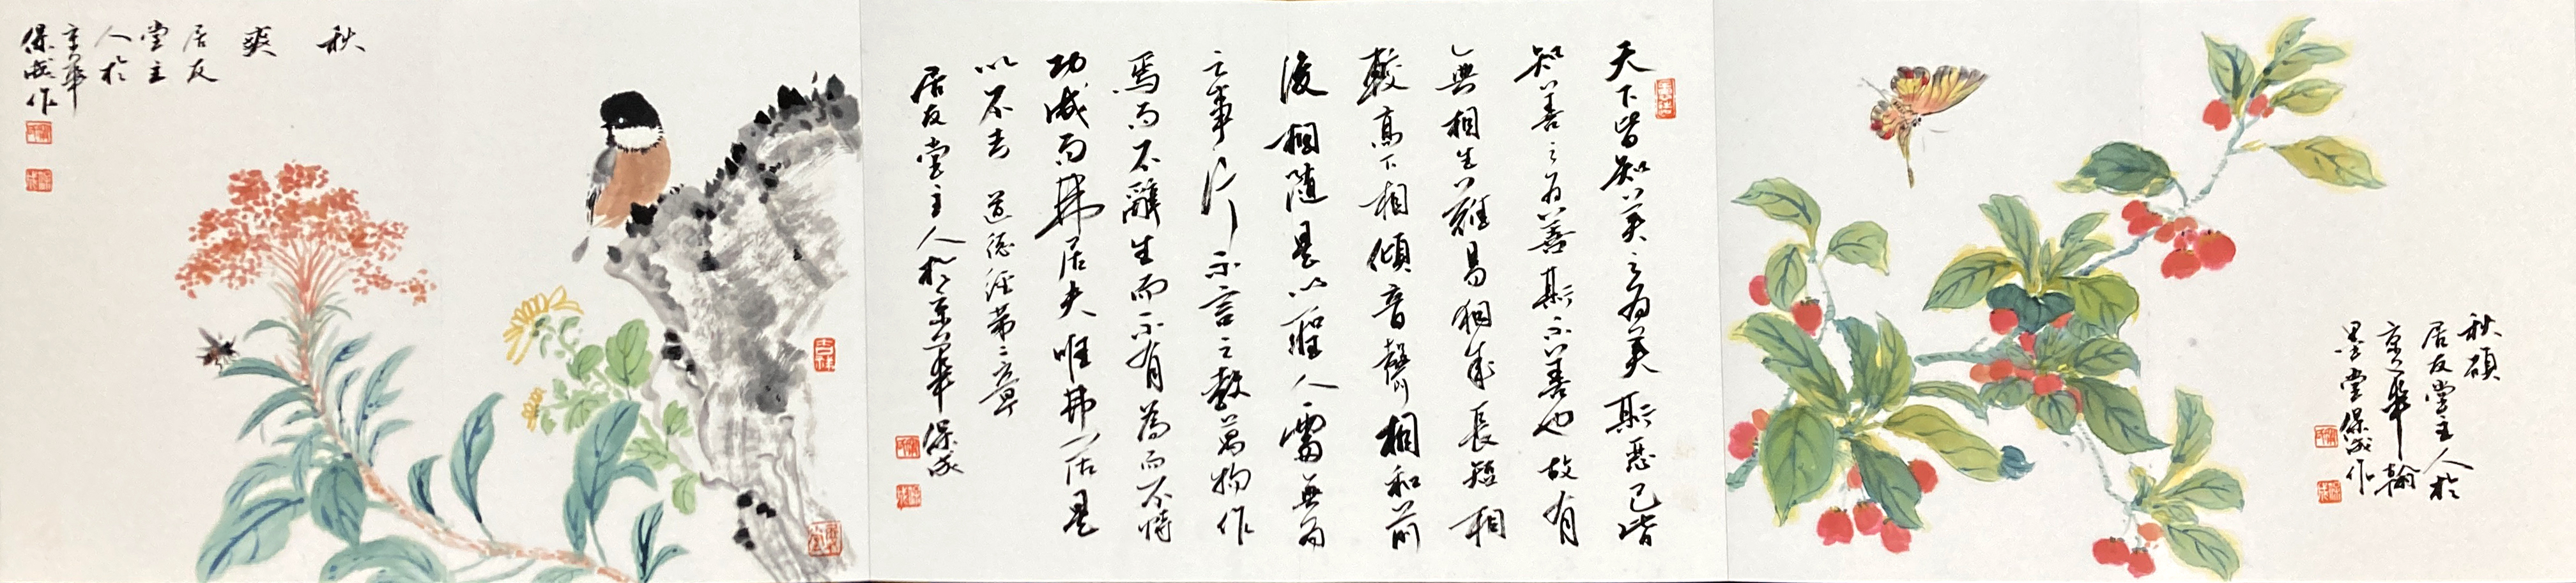 秋碩
居友堂主人於
京華翰
墨堂保成作
天下皆知美之為美斯惡已皆
知善之為善斯不善也故有
無相生難易相成長短相
較高下相傾音聲相和前
後相隨是以聖人處無為
之事行不言之教萬物作
焉而不辭生而不有為而不恃
功成而弗居夫唯弗居是
以不去 道德經第二章
居友堂主人於京華保成
秋
爽
居友
堂主
人於
京華
保成作
吉祥